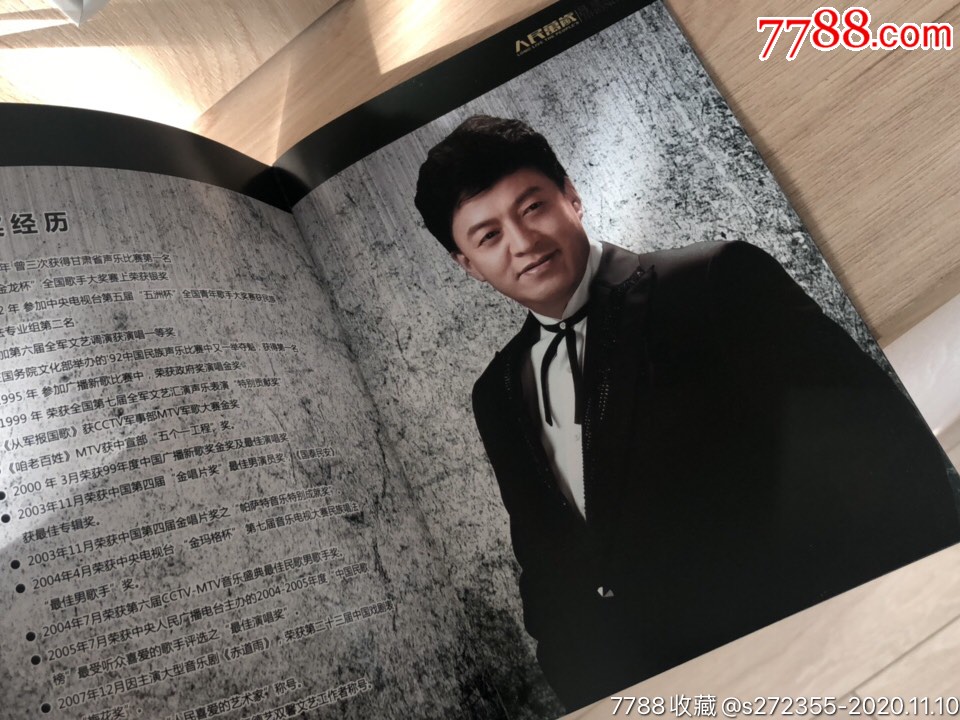 7788.com
人民万岁
经历
年 曾三次获得甘肃省声乐比赛第一名
金龙杯”全国歌手大奖赛上荣获银奖
2 年 参加中央电视台第五届“五洲杯”全国青年歌手大奖赛获民族
法专业组第二名
加第六届全军文艺调演获演唱一等奖
国务院文化部举办的'92中国民族声乐比赛中又一举夺魁,获得第一名
1995 年 参加广播新歌比赛中,荣获政府奖演唱金奖。
1999 年 荣获全国第七届全军文艺汇演声乐表演“特别贡献奖”
《从军报国歌》获CCTV军事部MTV军歌大赛金奖
《咱老百姓》MTV获中宣部“五个一工程”奖。
2000 年 3月荣获99年度中国广播新歌奖金奖及最佳演唱奖
2003年11月荣获中国第四届“金唱片奖”最佳男演员奖(《国泰民安》
获最佳专辑奖。
2003年11月荣获中国第四届金唱片奖之“帕萨特音乐特别成就奖”
2004年4月荣获中央电视台“金玛格杯”第七届音乐电视大赛民族唱法
“最佳男歌手”奖。
2004年7月荣获第六届CCTV-MTV音乐盛典最佳民歌男歌手奖。
2005年7月荣获中央人民广播电台主办的2004-2005年度“中国民歌
榜”最受听众喜爱的歌手评选之“最佳演唱奖”。
2007年12月因主演大型音乐剧《赤道雨》,荣获第二十三届中国戏剧表
花奖”。
民喜爱的艺术家”称号。
双馨文艺工作者称号;
7788收藏@s272355-2020.11.10